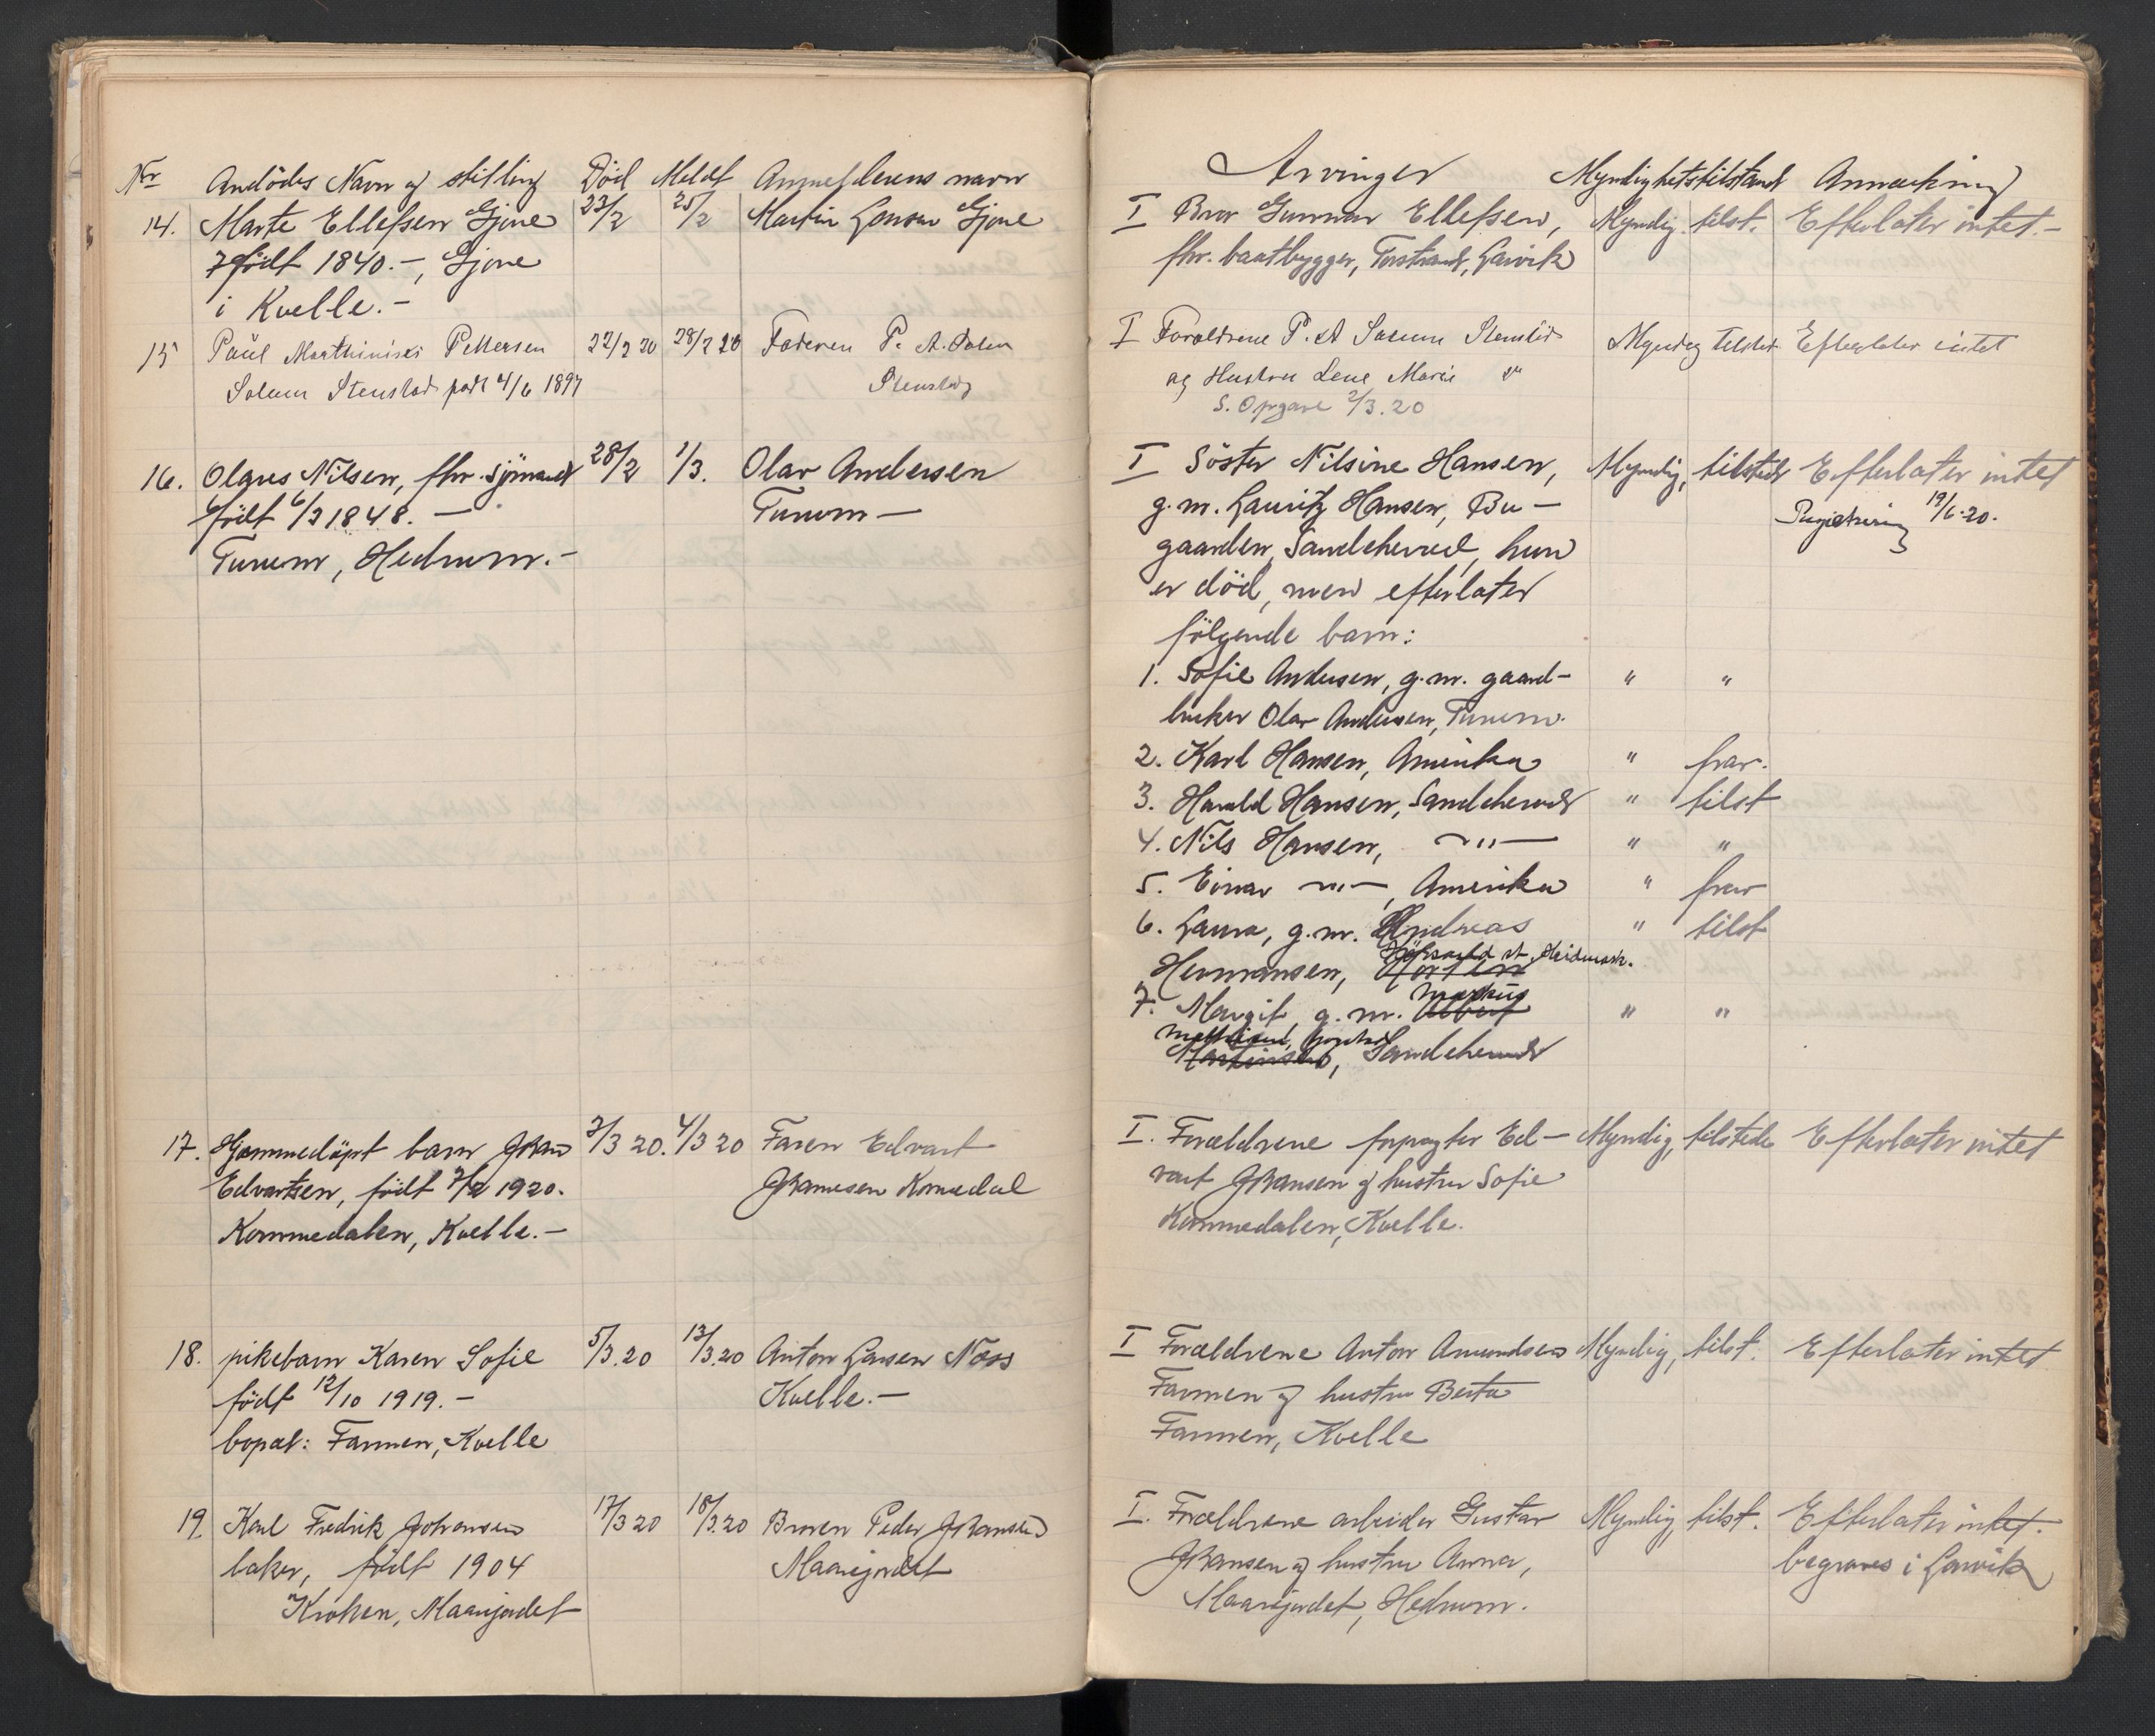 Nr Avdödes Navn og stilling Död Meldt Anmelderens navn
14. Marte Ellefsen Gjone 23/2 25/2 Martin Larsen Gjone
født 1840.-, Gjone
i Kvelle.-
15 Paul Marthinius Pettersen 22/2 20 28/2 20 Faderen P. A. Solum
Solum Stenslad født 4/6 1897 Stenslad
16. Olaus Nilsen, fhr. sjömand 28/2 1/3. Olav Andersen
født 6/3 1848. - Tuum -
Tuum, Hedrum.-
17. Hjemmedöpt barn Johan 3/3 20. 4/3 20 Faren Edvart
Edvartsen, født 7/2 1920. Johannesen Komedal
Kommedalen, Kvelle.-
18. pikebarn Karen Sofie 5/3.20 13/3.20 Anton Larsen Næss
født 12/10 1919.- Kvelle.-
bopæl: Farmen, Kvelle
19. Karl Fredrik Johansen 17/3 20 18/3.20 Broren Peder Johansen
baker, født 1904 Maanejordet
Kroken, Maanejordet
Arvinger Myndighetstilstand Anmerkning
I Bror Gunnar Ellefsen, Myndig. tilst. Efterlater intet.-
fhr. baatbygger, Torstrand, Larvik
I Forældrene P. A Solum Stenslad Myndig tilsted Efterlater intet
og Hustru Lene Marie "
S. Opgave 2/3.20
I Söster Nilsine Hansen, Myndig, tilstede Efterlater intet
g.m. Lauritz Hansen, Bu- Registrering 19/6.20.
gaarden, Sandeherred, hun
er död, men efterlater
fölgende barn:
1. Sofie Andersen, g.m. gaard- " "
bruker Olav Andersen, Tuum.
2. Karl Hansen, Amerika " frav.
3. Harald Hansen, Sandeherred " tilst
4. Nils Hansen, -"- " "
5. Einar -"-, Amerika " frav
6. Laura, g.m. Andreas " tilst
Hermansen, Horten st. Hedmark.
7. Margit, g.m. Albert Markus " "
Martinsen, Sandeherred
I. Forældrene forpagter Ed- Myndig, tilstede Efterlater intet
vart Johansen og hustru Sofie
Kommedalen, Kvelle.
I Forældrene Anton Amundsen Myndig, tilst. Efterlater intet
Farmen og hustru Berta
Farmen, Kvelle
I. Forældrene arbeider Gustav Myndig, tilst. Efterlater intet.
Johansen og hustru Anna, begraves i Larvik
Maanejordet, Hedrum.